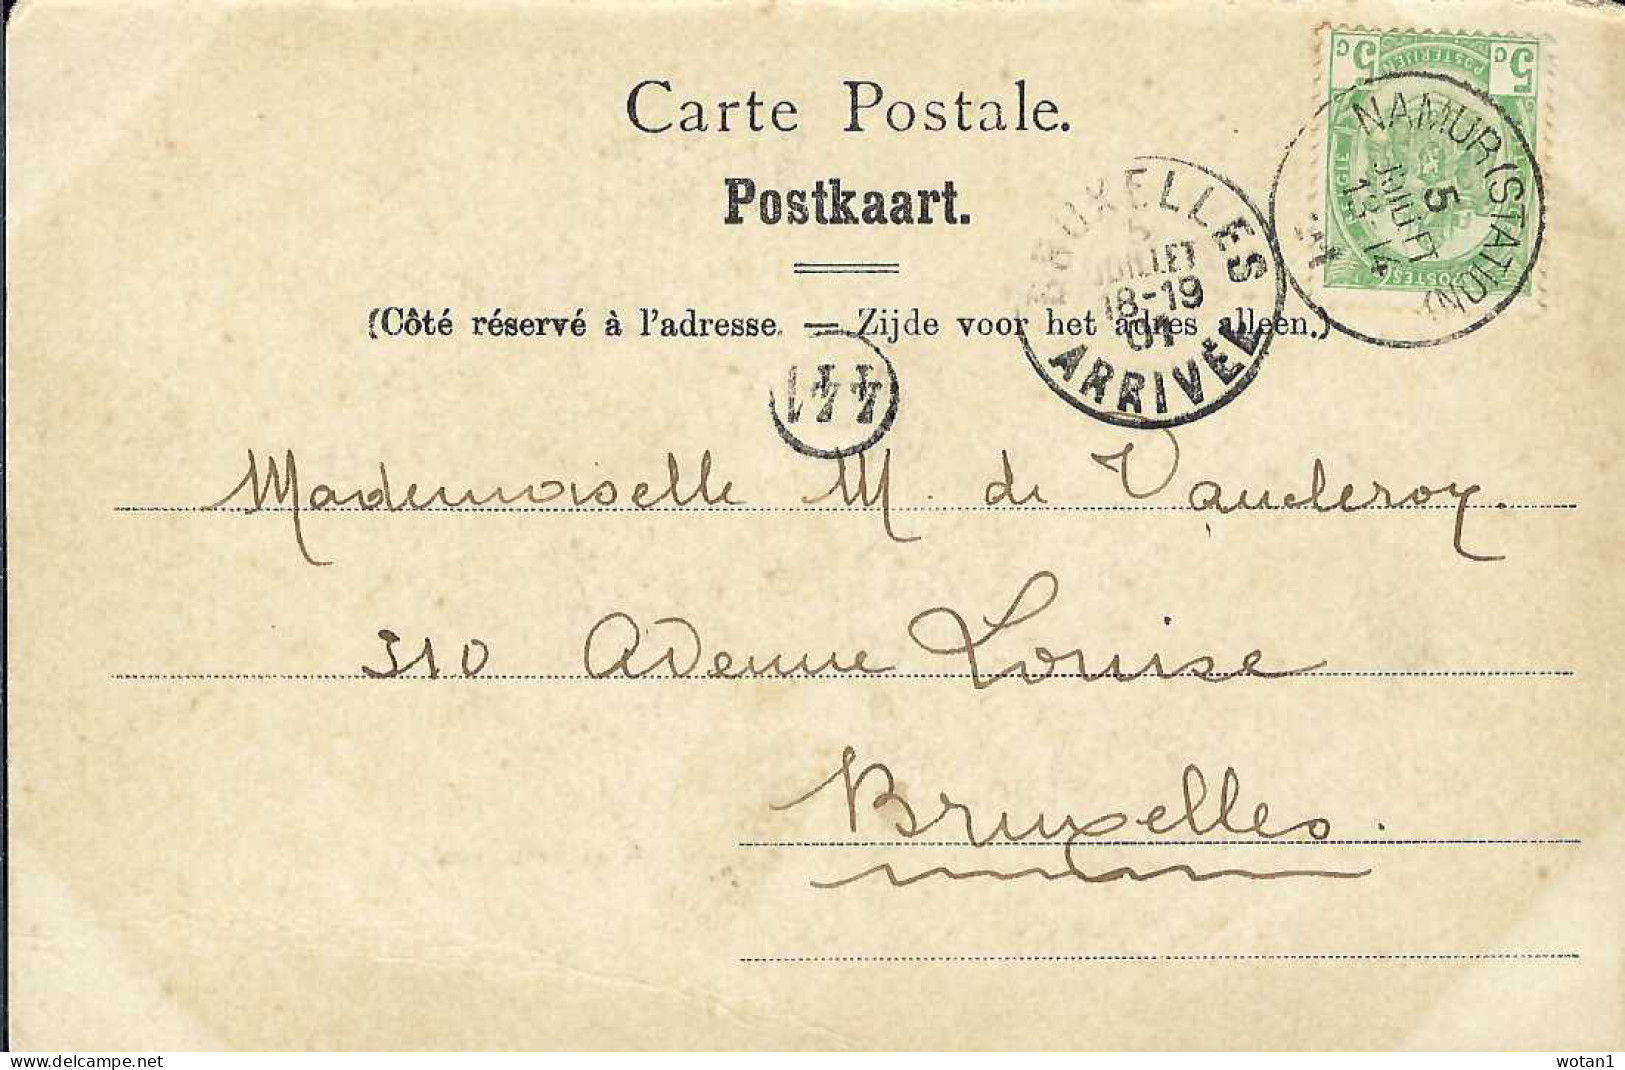 Carte Postale.
Postkaart.
(Côté réservé à l'adresse. — Zijde voor het adres alleen.)
5 c POSTERIJEN 5 c
POSTES
NAMUR (STATION)
5
JUILLET
13-14
BRUXELLES
5
JUILLET
18-19
01
ARRIVÉE
Mademoiselle M. de Vaucleroy.
310 Avenue Louise
Bruxelles.
https://www.delcampe.net
wotan1